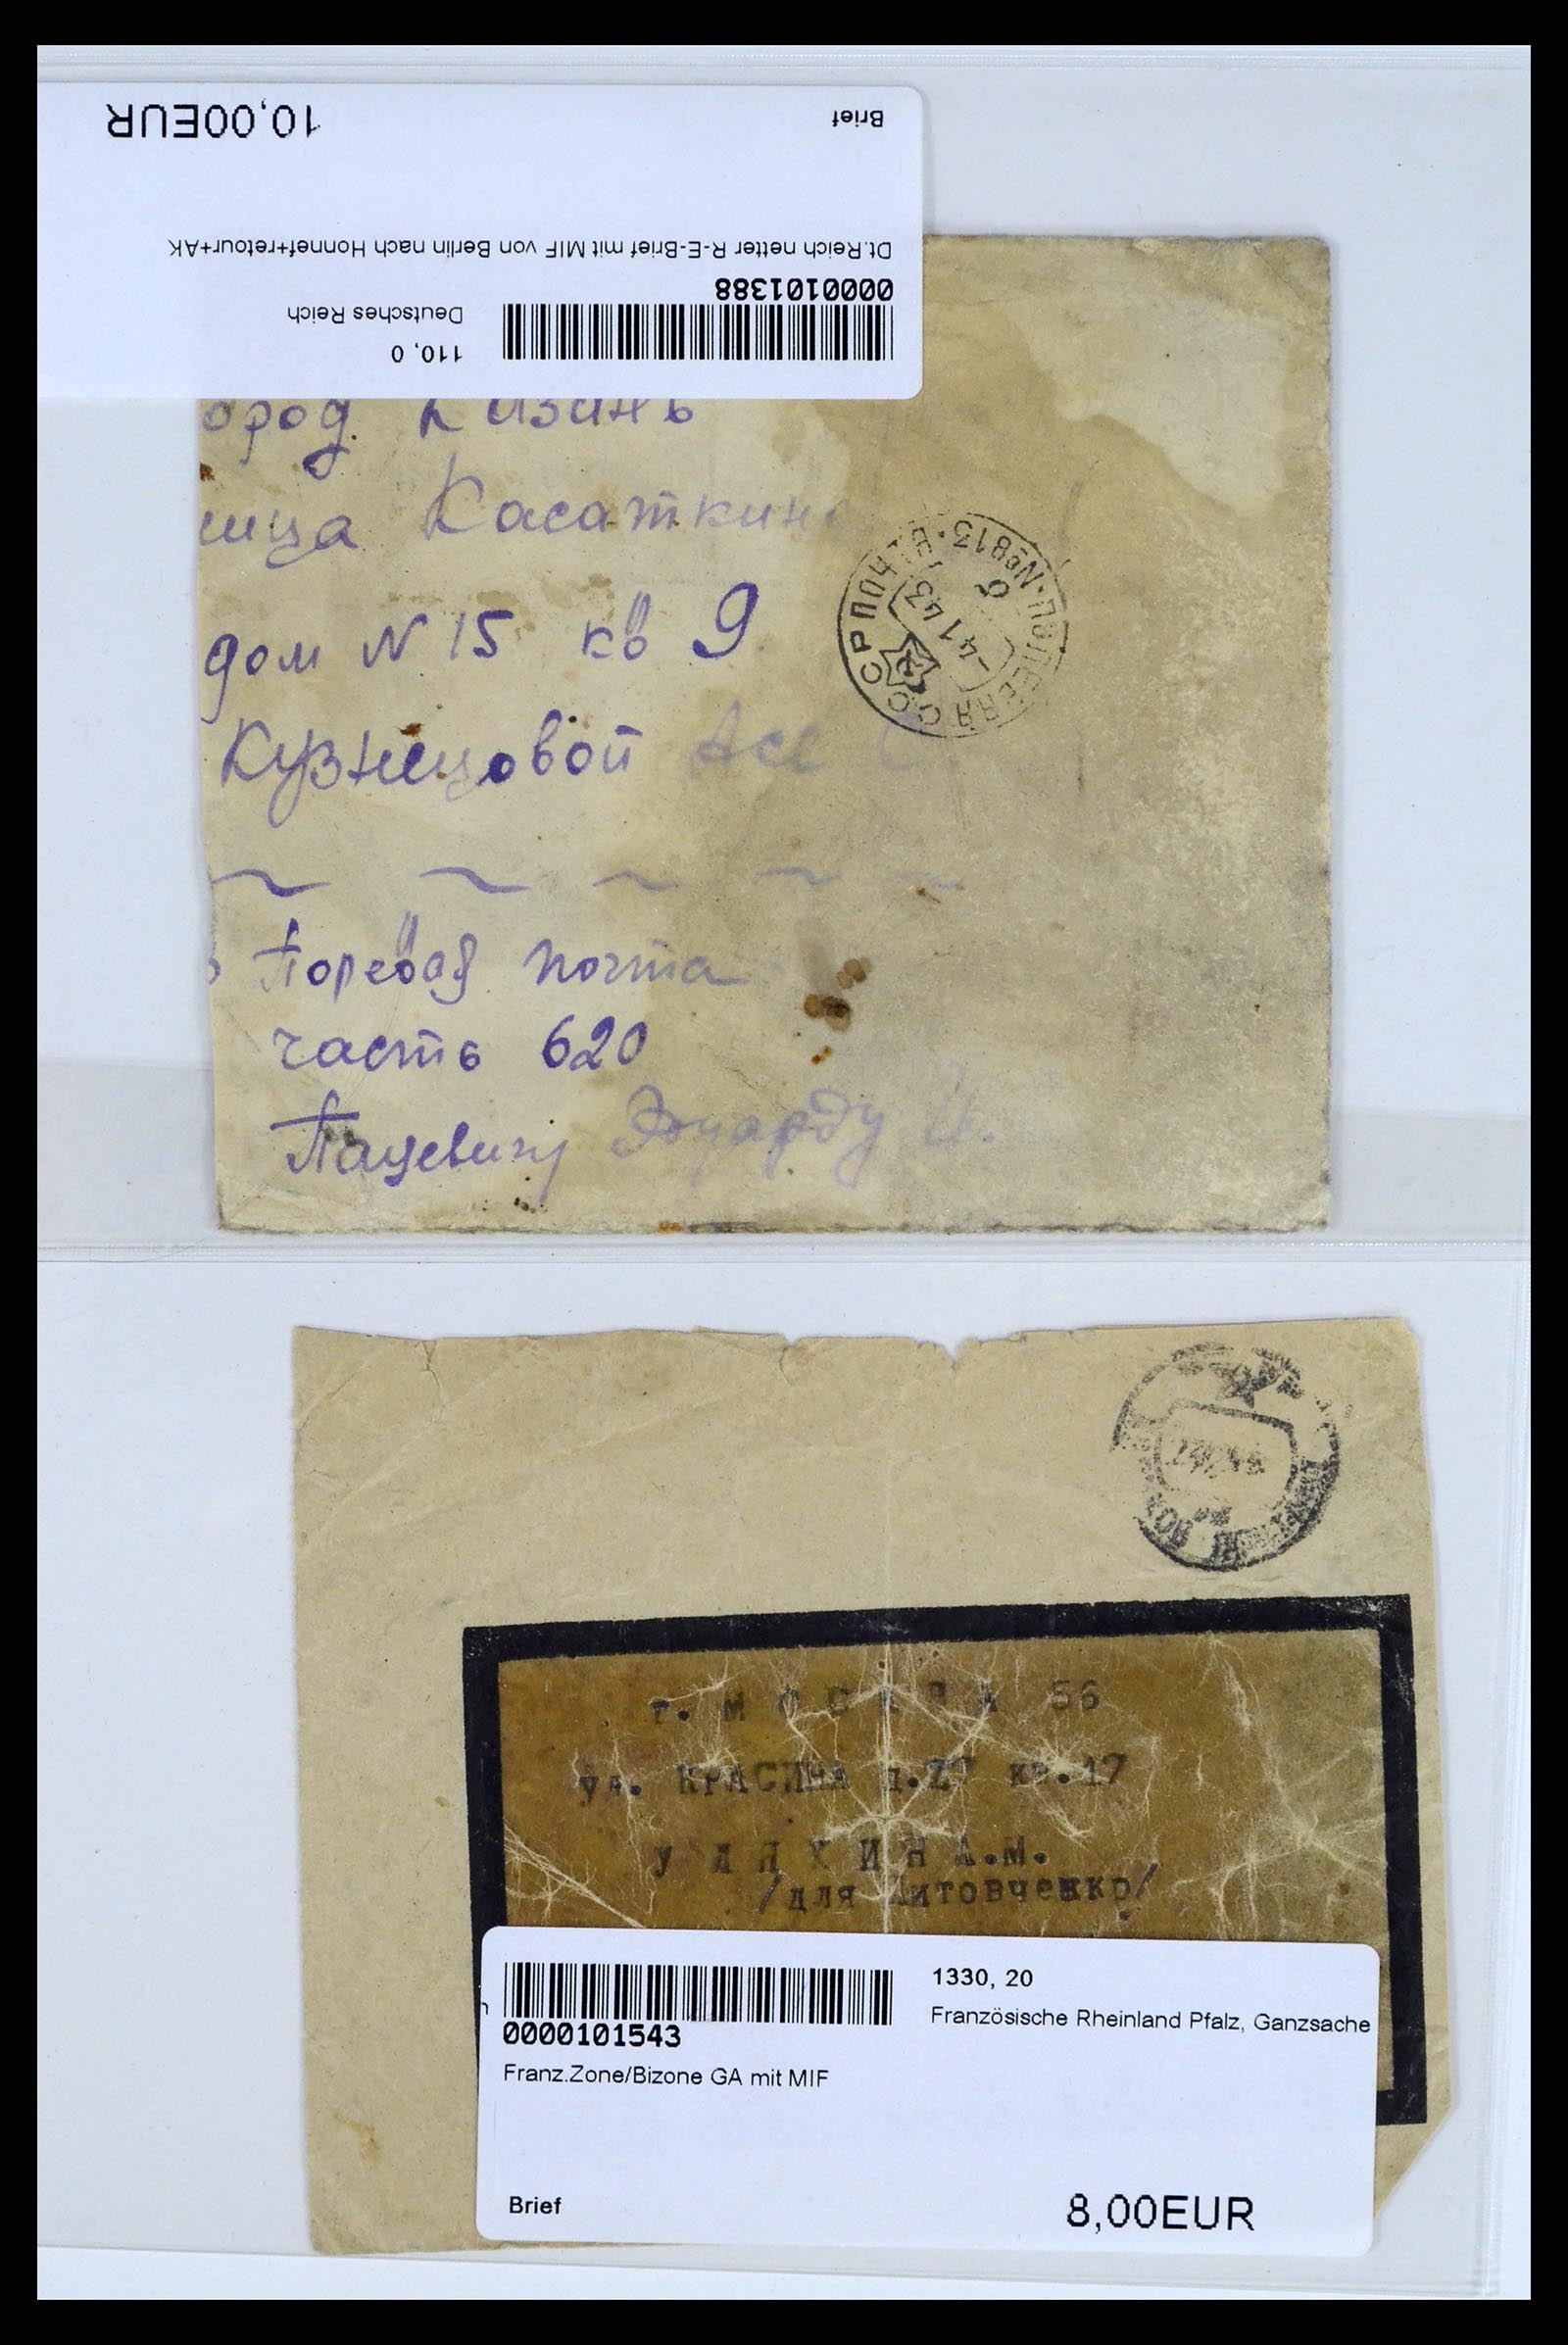 10,00EUR
Brief
Dt.Reich netter R-E-Brief mit MIF von Berlin nach Honnef+retour+AK
0000101388
Deutsches Reich
110, 0
ород Казань
лица
дом N 15 кв 9
СССР ПОЧТА • №813 • ПОЛЕВАЯ
-4 1 43
Кузнецовой Асе
Полевая почта
часть 620
Пацевичу Эдуарду И.
г. МОСКВА 56
ул. КРАСИНА д.27 кв.17
УЛЯХИН А.М.
/для Литовченко/
0000101543
1330, 20
Französische Rheinland Pfalz, Ganzsache
Franz.Zone/Bizone GA mit MIF
Brief
8,00EUR